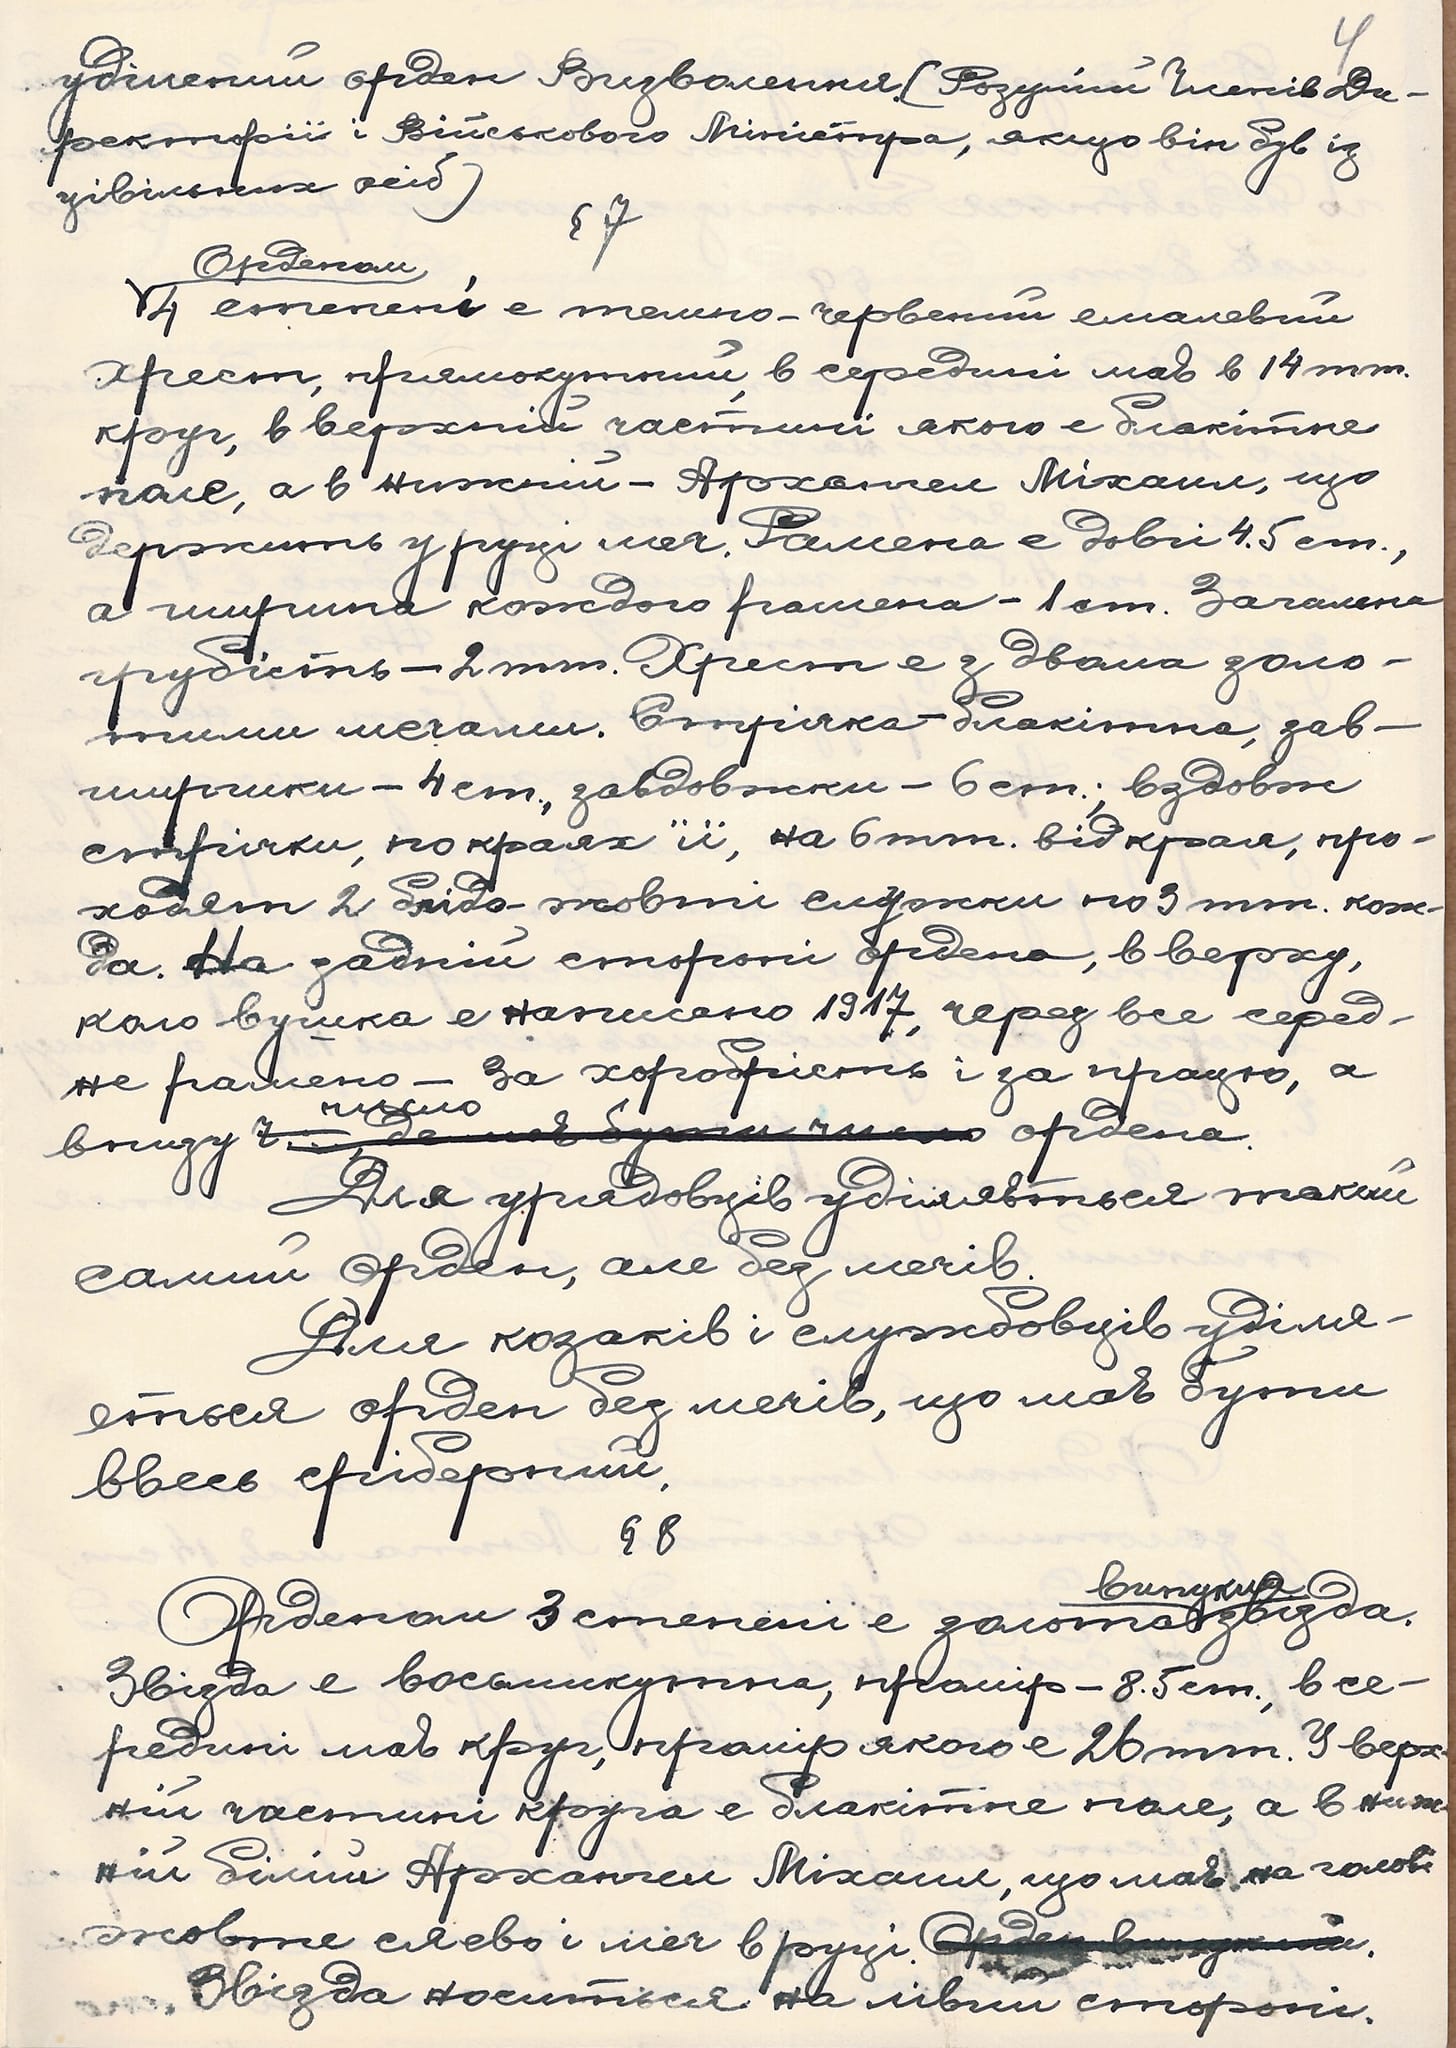 4
уділений орден Визволення. (Розумій Членів Ди-
ректорії і Військового Міністра, якщо він був із
цівільних осіб)
§ 7
Орденом
4 степені є темно-червений емалевий
хрест, прямокутний, в середині має в 14 mm.
круг, в верхній частині якого є блакітне
поле, а в нижній - Архангел Міхаил, що
держить у руці меч. Рамена є довгі 4.5 cm.,
а ширина кождого рамена - 1 cm. Загальна
грубість - 2 mm. Хрест є з двома золо-
тими мечами. Стрічка - блакітна, зав-
ширшки - 4 cm., завдовжки - 6 cm.; вздовж
стрічки, по краях її, на 6 mm. від края, про-
ходят 2 блідо-жовті смужки по 3 mm. кож-
да. На задній стороні ордена, в верху,
коло вушка є написано 1917, через все серед-
нє рамено - За хоробрість і за працю, а
число
внизу ч. ..., де має бути число ордена.
Для урядовців уділяється такий
самий орден, але без мечів.
Для козаків і службовців уділя-
ється орден без мечів, що має бути
ввесь сріберний.
§ 8
випукла
Орденом 3 степені є золота звізда.
Звізда є восьмикутна, промір - 8.5 cm., в се-
редині має круг, промір якого є 26 mm. У верх-
ній частині круга є блакітне поле, а в ниж-
ній білій Архангел Міхаил, що має на голові
жовте сяєво і меч в руці. Орден випуклий.
Звізда носиться на лівій стороні.